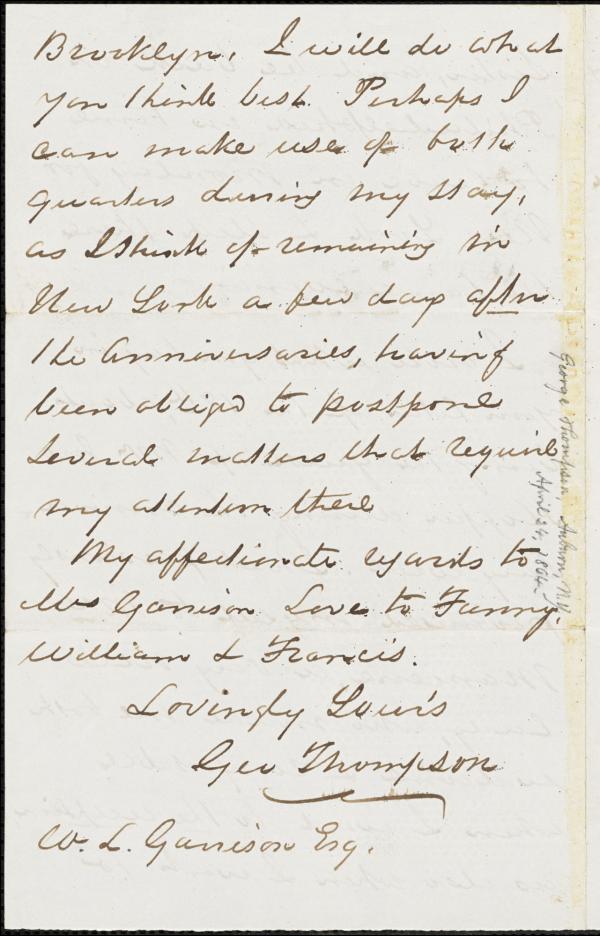 Brooklyn, I will do what
you think best. Perhaps I
can make use of both
quarters during my stay,
as I think of remaining in
New York a few days after
the Anniversaries, having
been obliged to postpone
several matters that require
my attention there
My affectionate regards to
Mrs Garrison Love to Fanny,
William & Francis.
Lovingly Yours
Geo Thompson
W. L. Garrison Esq.
George Thompson, Auburn, N.Y.
April 24, 1864